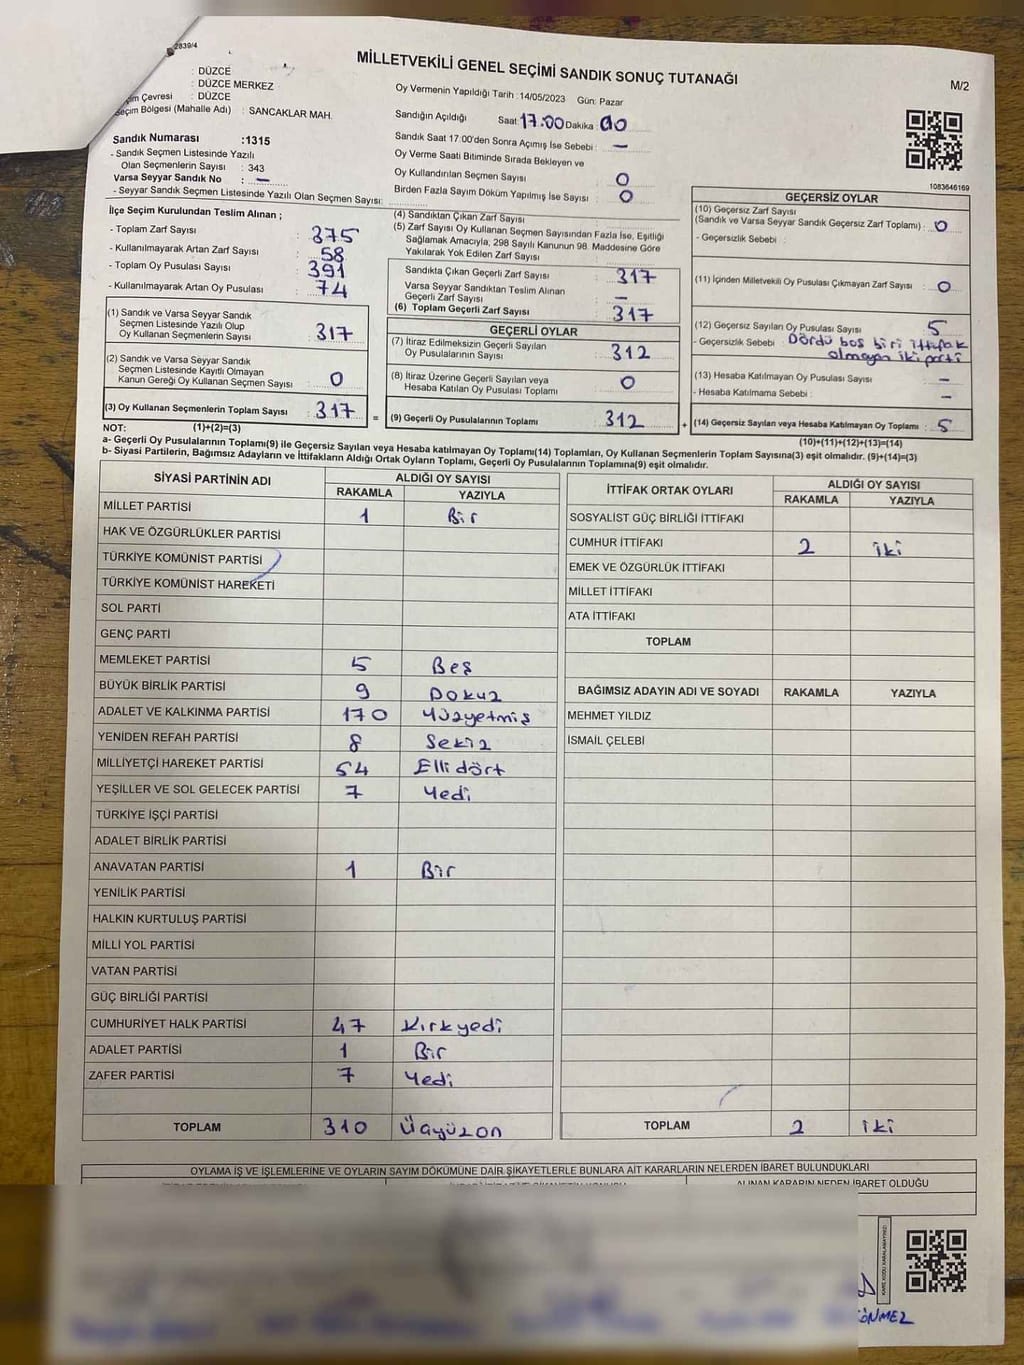 2839/4
MİLLETVEKİLİ GENEL SEÇİMİ SANDIK SONUÇ TUTANAĞI
M/2
: DÜZCE
: DÜZCE MERKEZ
Çevresi : DÜZCE
Seçim Bölgesi (Mahalle Adı) : SANCAKLAR MAH.
Oy Vermenin Yapıldığı Tarih : 14/05/2023 Gün: Pazar
Sandığın Açıldığı Saat 17:00 Dakika : 00
Sandık Saat 17:00'den Sonra Açımış İse Sebebi : –
Oy Verme Saati Bitiminde Sırada Bekleyen ve
Oy Kullandırılan Seçmen Sayısı : 0
Birden Fazla Sayım Döküm Yapılmış İse Sayısı : 0
Sandık Numarası :1315
- Sandık Seçmen Listesinde Yazılı
Olan Seçmenlerin Sayısı : 343
Varsa Seyyar Sandık No : –
- Seyyar Sandık Seçmen Listesinde Yazılı Olan Seçmen Sayısı:
1083646169
İlçe Seçim Kurulundan Teslim Alınan ;
- Toplam Zarf Sayısı : 375
- Kullanılmayarak Artan Zarf Sayısı : 58
- Toplam Oy Pusulası Sayısı : 391
- Kullanılmayarak Artan Oy Pusulası : 74
(1) Sandık ve Varsa Seyyar Sandık
Seçmen Listesinde Yazılı Olup
Oy Kullanan Seçmenlerin Sayısı : 317
(2) Sandık ve Varsa Seyyar Sandık
Seçmen Listesinde Kayıtlı Olmayan
Kanun Gereği Oy Kullanan Seçmen Sayısı : 0
(3) Oy Kullanan Seçmenlerin Toplam Sayısı : 317 =
(4) Sandıktan Çıkan Zarf Sayısı :
(5) Zarf Sayısı Oy Kullanan Seçmen Sayısından Fazla İse, Eşitliği
Sağlamak Amacıyla, 298 Sayılı Kanunun 98. Maddesine Göre
Yakılarak Yok Edilen Zarf Sayısı :
Sandıkta Çıkan Geçerli Zarf Sayısı : 317
Varsa Seyyar Sandıktan Teslim Alınan
Geçerli Zarf Sayısı : –
(6) Toplam Geçerli Zarf Sayısı : 317
GEÇERLİ OYLAR
(7) İtiraz Edilmeksizin Geçerli Sayılan
Oy Pusulalarının Sayısı : 312
(8) İtiraz Üzerine Geçerli Sayılan veya
Hesaba Katılan Oy Pusulası Toplamı : 0
(9) Geçerli Oy Pusulalarının Toplamı : 312 +
GEÇERSİZ OYLAR
(10) Geçersiz Zarf Sayısı
(Sandık ve Varsa Seyyar Sandık Geçersiz Zarf Toplamı) : 0
- Geçersizlik Sebebi :
(11) İçinden Milletvekili Oy Pusulası Çıkmayan Zarf Sayısı : 0
(12) Geçersiz Sayılan Oy Pusulası Sayısı : 5
- Geçersizlik Sebebi : Dördü boş biri ittifak
olmayan iki parti
(13) Hesaba Katılmayan Oy Pusulası Sayısı : –
- Hesaba Katılmama Sebebi : –
(14) Geçersiz Sayılan veya Hesaba Katılmayan Oy Toplamı : 5
NOT: (1)+(2)=(3)
(10)+(11)+(12)+(13)=(14)
a- Geçerli Oy Pusulalarının Toplamı(9) ile Geçersiz Sayılan veya Hesaba katılmayan Oy Toplamı(14) Toplamları, Oy Kullanan Seçmenlerin Toplam Sayısına(3) eşit olmalıdır. (9)+(14)=(3)
b- Siyasi Partilerin, Bağımsız Adayların ve İttifakların Aldığı Ortak Oyların Toplamı, Geçerli Oy Pusulalarının Toplamına(9) eşit olmalıdır.
SİYASİ PARTİNİN ADI ALDIĞI OY SAYISI
RAKAMLA YAZIYLA
MİLLET PARTİSİ 1 Bir
HAK VE ÖZGÜRLÜKLER PARTİSİ
TÜRKİYE KOMÜNİST PARTİSİ
TÜRKİYE KOMÜNİST HAREKETİ
SOL PARTİ
GENÇ PARTİ
MEMLEKET PARTİSİ 5 Beş
BÜYÜK BİRLİK PARTİSİ 9 Dokuz
ADALET VE KALKINMA PARTİSİ 170 Yüzyetmiş
YENİDEN REFAH PARTİSİ 8 Sekiz
MİLLİYETÇİ HAREKET PARTİSİ 54 Ellidört
YEŞİLLER VE SOL GELECEK PARTİSİ 7 Yedi
TÜRKİYE İŞÇİ PARTİSİ
ADALET BİRLİK PARTİSİ
ANAVATAN PARTİSİ 1 Bir
YENİLİK PARTİSİ
HALKIN KURTULUŞ PARTİSİ
MİLLİ YOL PARTİSİ
VATAN PARTİSİ
GÜÇ BİRLİĞİ PARTİSİ
CUMHURİYET HALK PARTİSİ 47 Kırkyedi
ADALET PARTİSİ 1 Bir
ZAFER PARTİSİ 7 Yedi
TOPLAM 310 Üçyüzon
İTTİFAK ORTAK OYLARI ALDIĞI OY SAYISI
RAKAMLA YAZIYLA
SOSYALİST GÜÇ BİRLİĞİ İTTİFAKI
CUMHUR İTTİFAKI 2 iki
EMEK VE ÖZGÜRLÜK İTTİFAKI
MİLLET İTTİFAKI
ATA İTTİFAKI
TOPLAM
BAĞIMSIZ ADAYIN ADI VE SOYADI RAKAMLA YAZIYLA
MEHMET YILDIZ
İSMAİL ÇELEBİ
TOPLAM 2 iki
OYLAMA İŞ VE İŞLEMLERİNE VE OYLARIN SAYIM DÖKÜMÜNE DAİR ŞİKAYETLERLE BUNLARA AİT KARARLARIN NELERDEN İBARET BULUNDUKLARI
ALINAN KARARIN NEDEN İBARET OLDUĞU
KARE KODU KARALAMAYINIZ!
SÖNMEZ